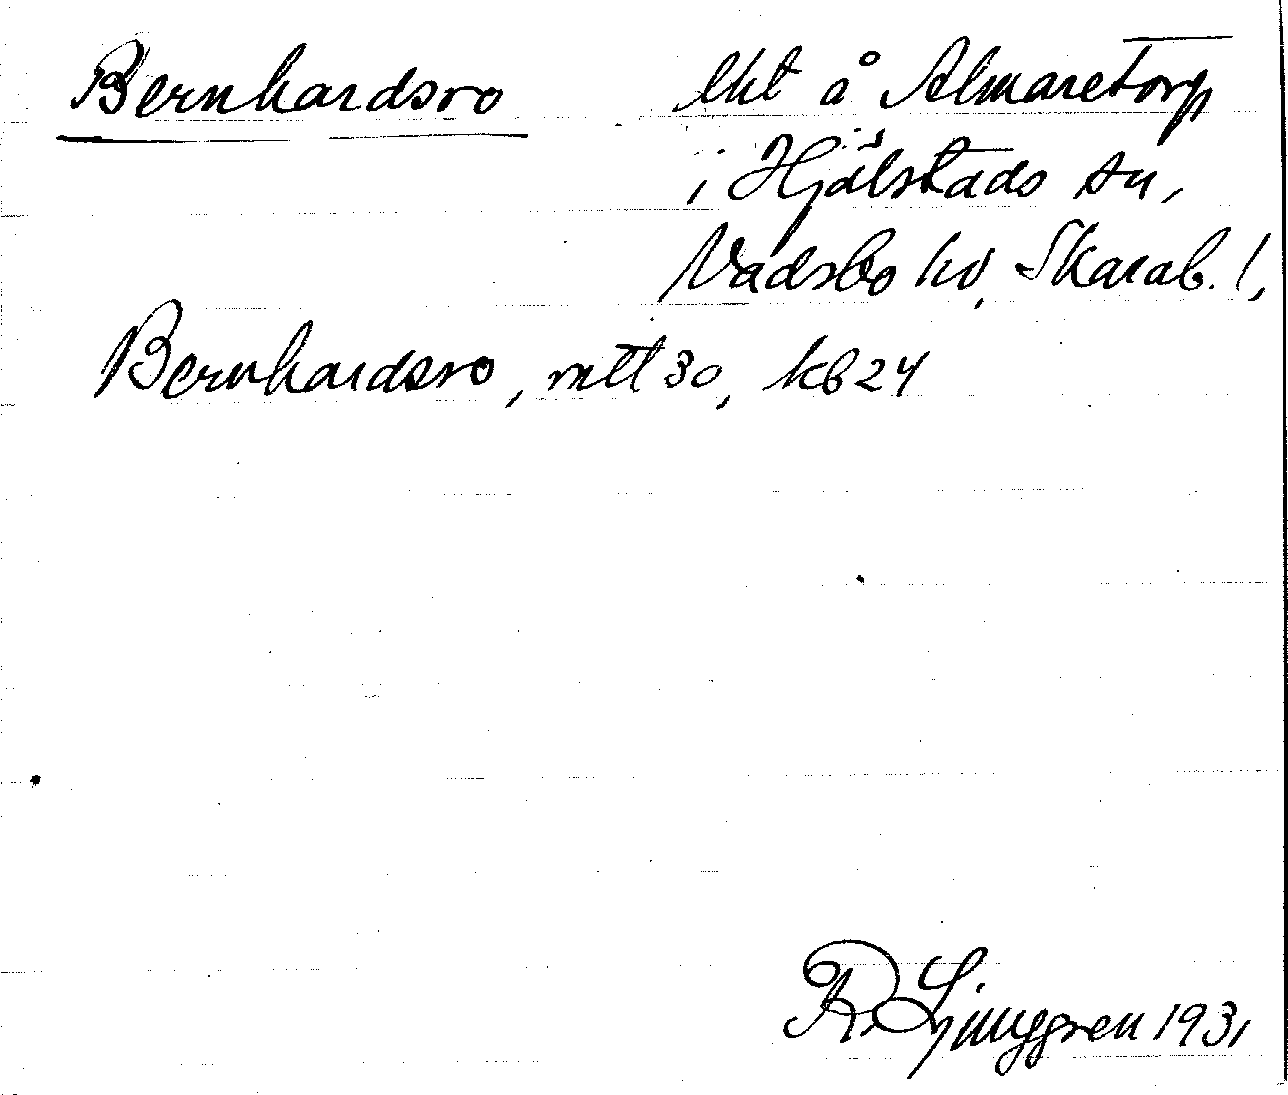 Bernhardsro lht å Almaretorp
i Hjälstads sn,
Vadsbo hd, Skarab. l,
Bernhardsro, mtl 30, kb 24
R. Ljunggren 1931